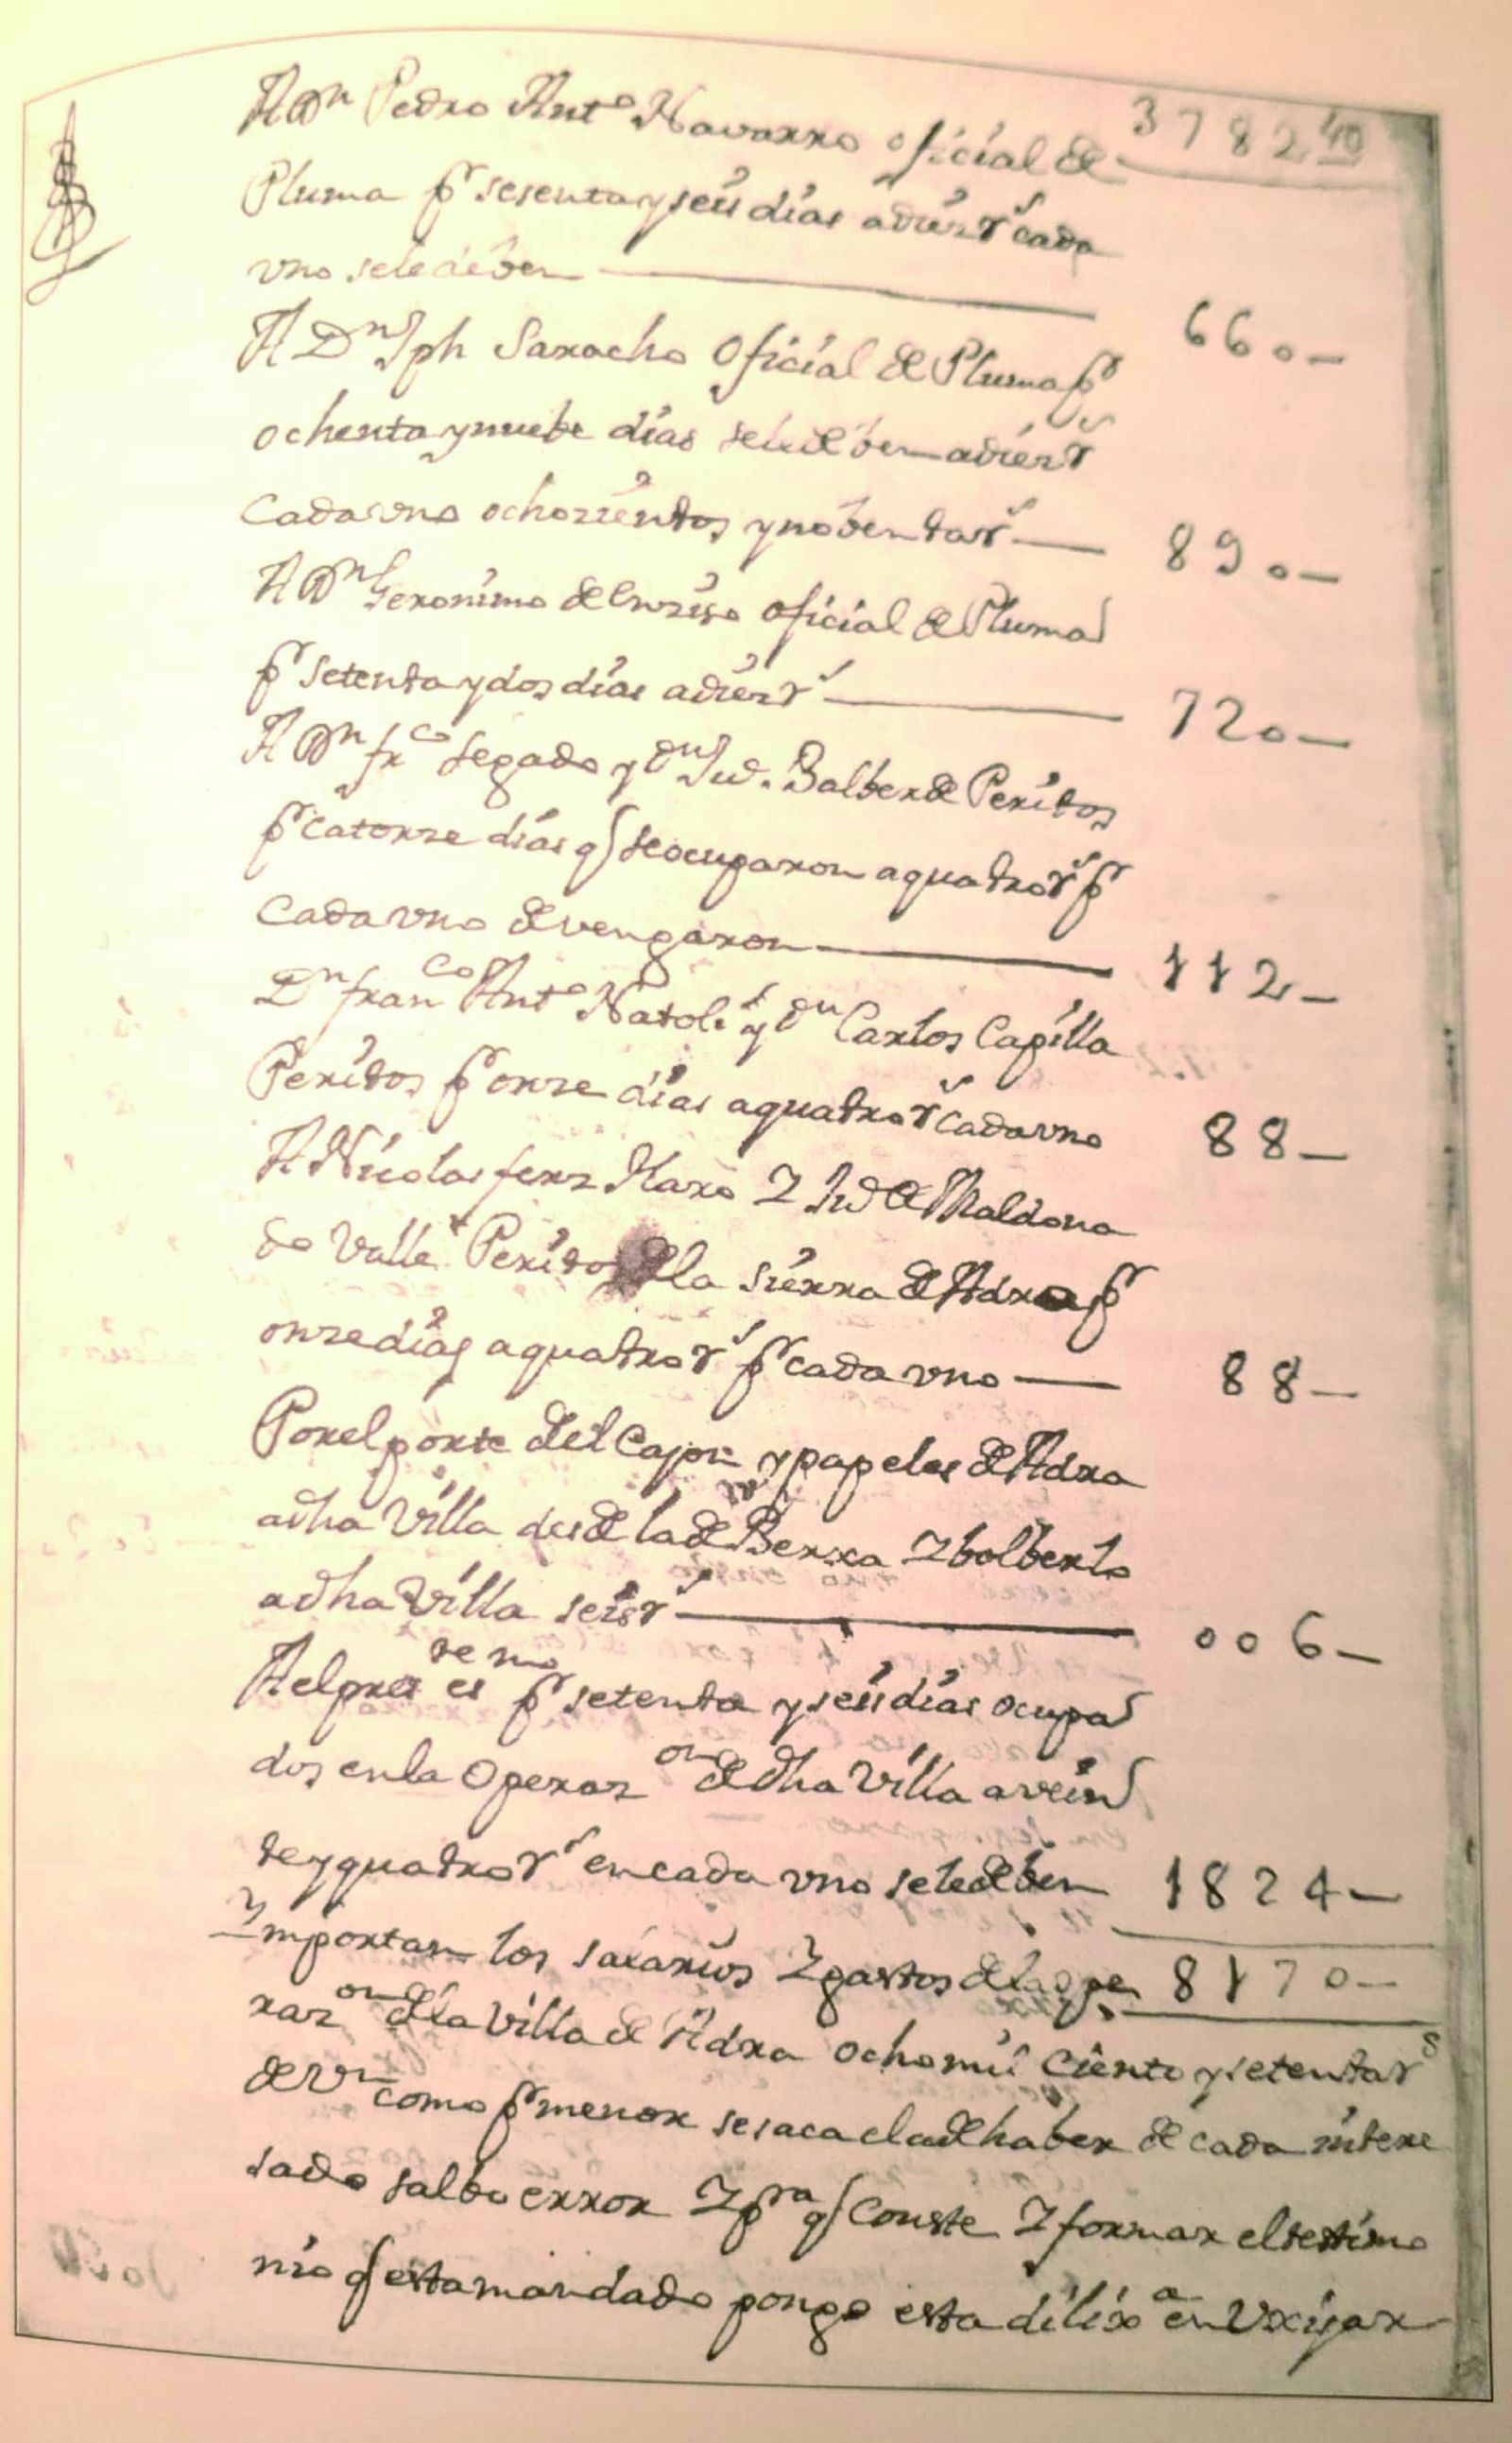 A Dn Pedro Anto Navarro oficial de 3782 40
Pluma pr sesenta y seis dias a diez rs cada
vno se le deben 660
A Dn Jph Saracho Oficial de Pluma pr
ochenta y nuebe dias se le deben a diez rs
Cada vno ochozientos y nobenta rs 890
A Dn Geronimo de oficial de Pluma
pr setenta y dos dias a diez rs 720
A Dn frco Segado y Dn Ju. Balberde Peritos
pr catorze dias q se ocuparon a quatro rs pr
Cada vno devengaron 112
Dn franco Anto Natoli y Dn Carlos Capilla
Peritos pr onze dias a quatro rs cada vno 88
A Nicolas ferz Haro Y Ju de Maldona
do Valle Peritos de la Sierra de Adra pr
onze dias a quatro rs pr cada vno 88
Por el porte del Cajon y papeles de Adra
a dha Villa desde la de Berxa Y bolberlo
a dha Villa seis rs 006
A el preste es no pr setenta y seis dias ocupa
dos en la Operazon de dha Villa a vein
te y quatro rs en cada vno se le deben 1824
Ymportan los salarios Y gastos de la ope 8170
razon de la Villa de Adra Ocho mil Ciento y setenta rs
de Vn como pr menor se saca el de haber de cada intere
sado salbo error Y pra q Conste Y formar el testimo
nio q esta mandado pongo esta dilixa en Vxijar